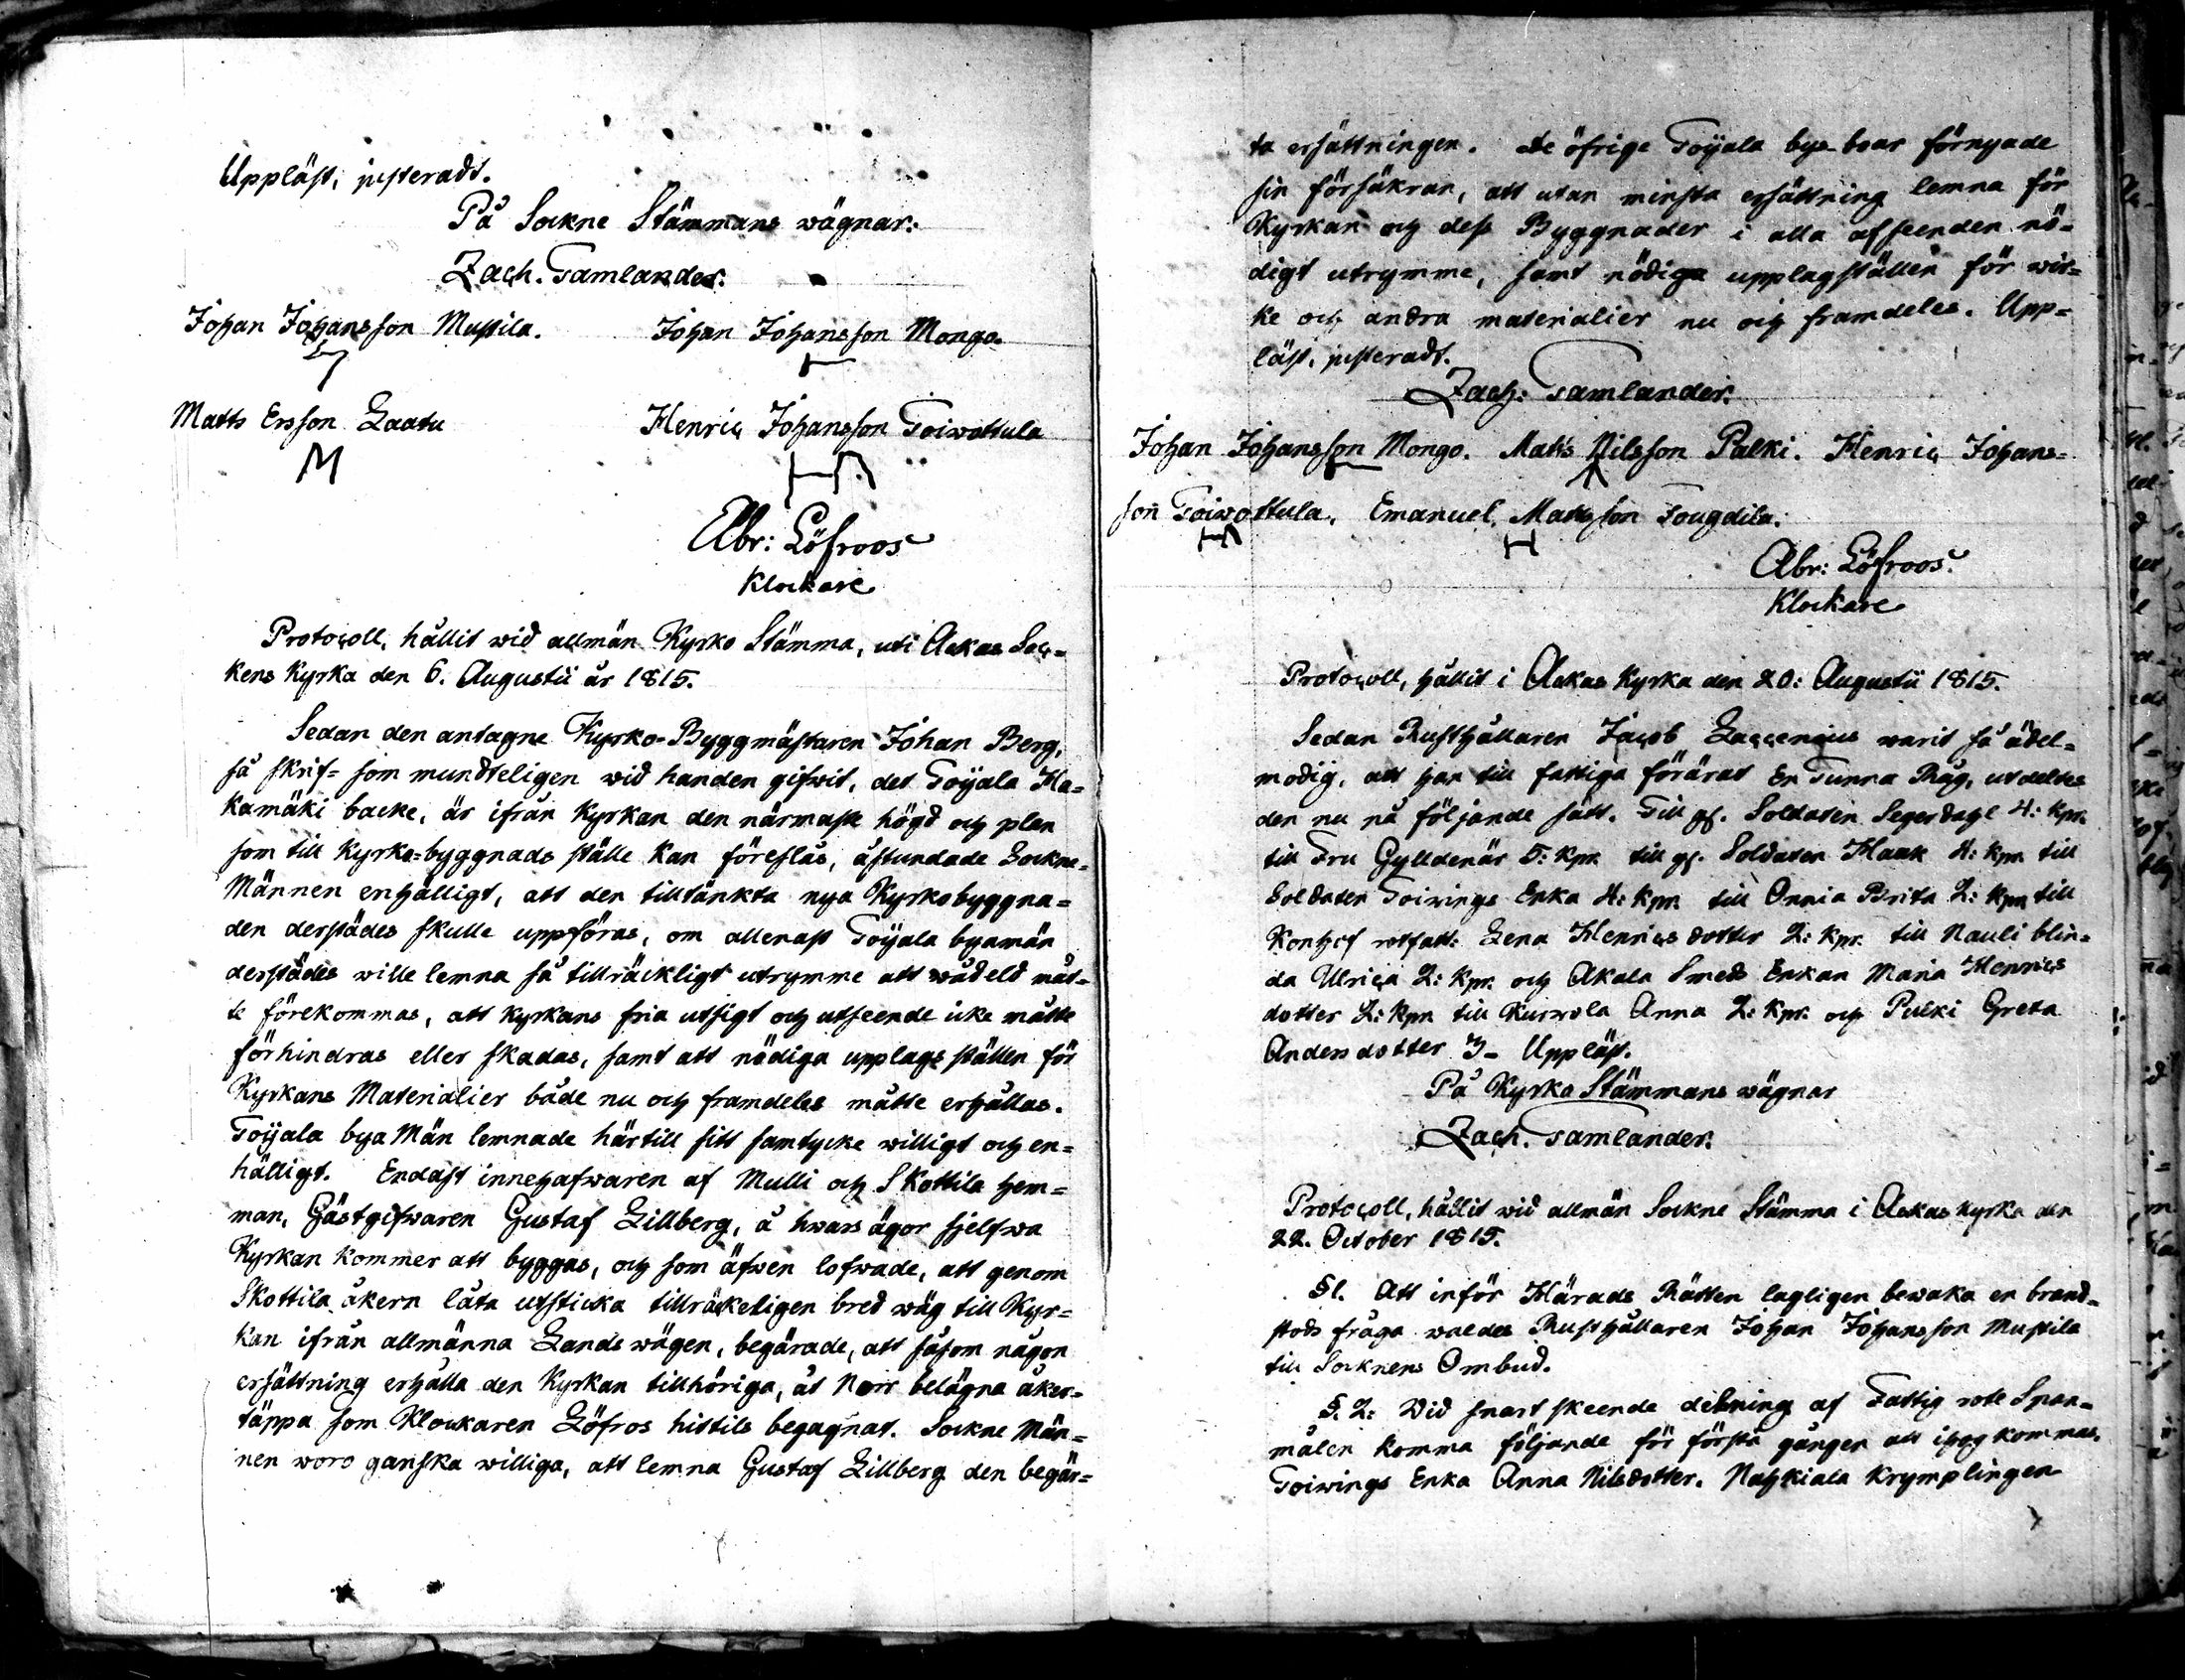 Uppläst, justeradt.
På Sockne Stämmans wägnar:
Zach. Tamlander.
Johan Johansson Mustila. Johan Johansson Mongo.
Matts Ersson Laatu Henric Johansson Toiwottula
M HA
Abr: Löfroos
Klockare
Protocoll, hållit wid allmän Kyrko Stämma, uti Ackas Soc-
kens Kyrka den 6. Augustii år 1815.
Sedan den antagne Kyrko-Byggmästaren Johan Berg,
så skrif= som mundteligen wid handen gifwit, det Toijala Ha=
kamäki backe, är ifrån Kyrkan den närmaste högd och plan
som till Kyrko=byggnads ställe kan föreslås, åstundade Sockne=
Männen enhälligt, att den tilltänkta nya Kyrkobyggna=
den derstädes skulle uppföras, om allenast Toijala byamän
derstädes wille lemna så tillräckligt utrymme att wådeld måt=
te förekommas, att Kyrkans fria utsigt och utseende icke måtte
förhindras eller skadas, samt att nödiga upplags ställen för
Kyrkans Materialier både nu och framdeles måtte erhållas.
Toijala bya Män lemnade härtill sitt samtycke willigt och en=
hälligt. Endast innehafwaren af Mulli och Skottila hem=
man, Gästgifwaren Gustaf Lillberg, å hwars ägor sjelfwa
Kyrkan kommer att byggas, och som äfwen lofwade, att genom
Skottila åkern låta utsticka tillräckeligen bred wäg till Kyr=
kan ifrån allmänna Landswägen, begärade, att såsom någon
ersättning erhålla den Kyrkan tillhöriga, åt Norr belägna åker=
täppa som Klockaren Löfros hittils begagnat. Sockne Män=
nen woro ganska williga, att lemna Gustaf Lillberg den begär=
ta ersättningen. De öfrige Toijala bya boar förnyade
sin försäkran, att utan minsta ersättning lemna för
Kyrkan och dess Byggnader i alla afseenden nö=
digt utrymme, samt nödiga upplagställen för wir=
ke och andra materialier nu och framdeles. Upp=
läst, justeradt.
Zach: Tamlander.
Johan Johansson Mongo. Matts Nilsson Palki. Henric Johans=
son Toiwottula. Emanuel Mattsson Fougdila.
HA H
Abr: Löfroos.
Klockare
Protocoll, hållit i Ackas Kyrka den 20: Augustii 1815.
Sedan Rusthållaren Jacob Laccenius warit så ädel=
modig, att han till fattiga förärat En Tunna Råg, utdeltes
den nu på följande sätt. Till gf. Soldaten Segerdahl 4: Kpr.
till Fru Gylldenär 5: Kpr. till gf. Soldaten Haak 4: Kpr. till
Soldaten Toiwings Enka 4: Kpr. till Onnia Brita 2: Kpr. till
Konhof rotfatt: Lena Henricsdotter 2: Kpr. till Nauli blin=
da Ulrica 2: Kpr. och Akala Smeds Enkan Maria Henrics
dotter 2: Kpr. till Kurwola Anna 2: Kpr. och Pulki Greta
Andersdotter 3- Uppläst.
På Kyrko Stämmans wägnar
Zach. Tamlander.
Protocoll, hållit wid allmän Sockne Stämma i Ackas Kyrka den
22. October 1815.
§1. Att inför Härads Rätten lagligen bewaka en brand=
stods fråga waldes Rusthållaren Johan Johansson Mustila
till Socknens Ombud.
§. 2: Wid snart skeende delning af Fattig rote Span=
målen komma följande för första gången att ihogkommas,
Toiwings Enka Anna Nilsdotter. Nahkiala Krymplingen